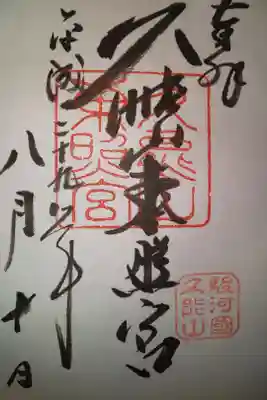 奉拝
久能山東照宮
平成二十九年
八月十日
久能山
東照宮
駿河國
久能山